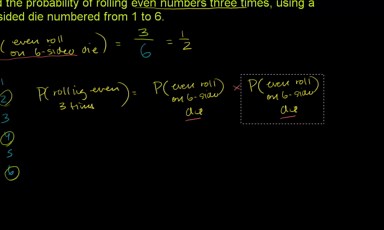 d the probability of rolling even numbers three times, using a
sided die numbered from 1 to 6.
( even roll on 6-sided die ) = 3/6 = 1/2
1
2
3
4
5
6
P( rolling even 3 times ) = P( even roll on 6-side die ) × P( even roll on 6-side die )